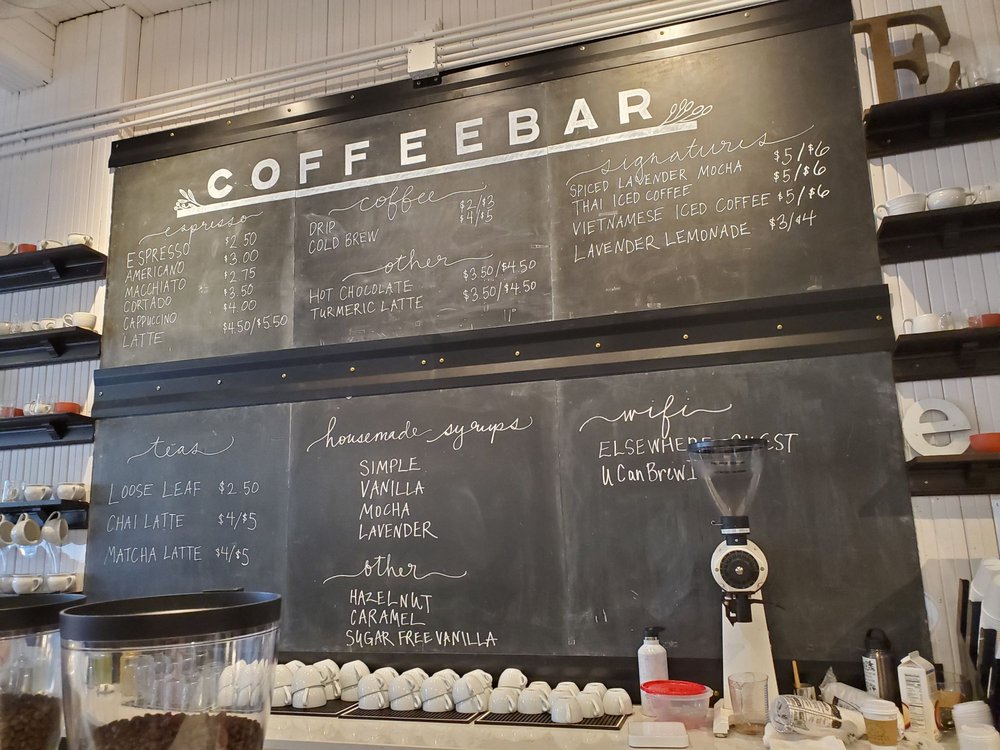 COFFEEBAR
espresso
ESPRESSO $2.50
AMERICANO $3.00
MACCHIATO $2.75
CORTADO $3.50
CAPPUCCINO $4.00
LATTE $4.50/$5.50
coffee
DRIP $2/$3
COLD BREW $4/$5
other
HOT CHOCOLATE $3.50/$4.50
TURMERIC LATTE $3.50/$4.50
signatures
SPICED LAVENDER MOCHA $5/$6
THAI ICED COFFEE $5/$6
VIETNAMESE ICED COFFEE $5/$6
LAVENDER LEMONADE $3/$4
teas
LOOSE LEAF $2.50
CHAI LATTE $4/$5
MATCHA LATTE $4/$5
housemade syrups
SIMPLE
VANILLA
MOCHA
LAVENDER
other
HAZELNUT
CARAMEL
SUGAR FREE VANILLA
wifi
ELSEWHERE
E
e